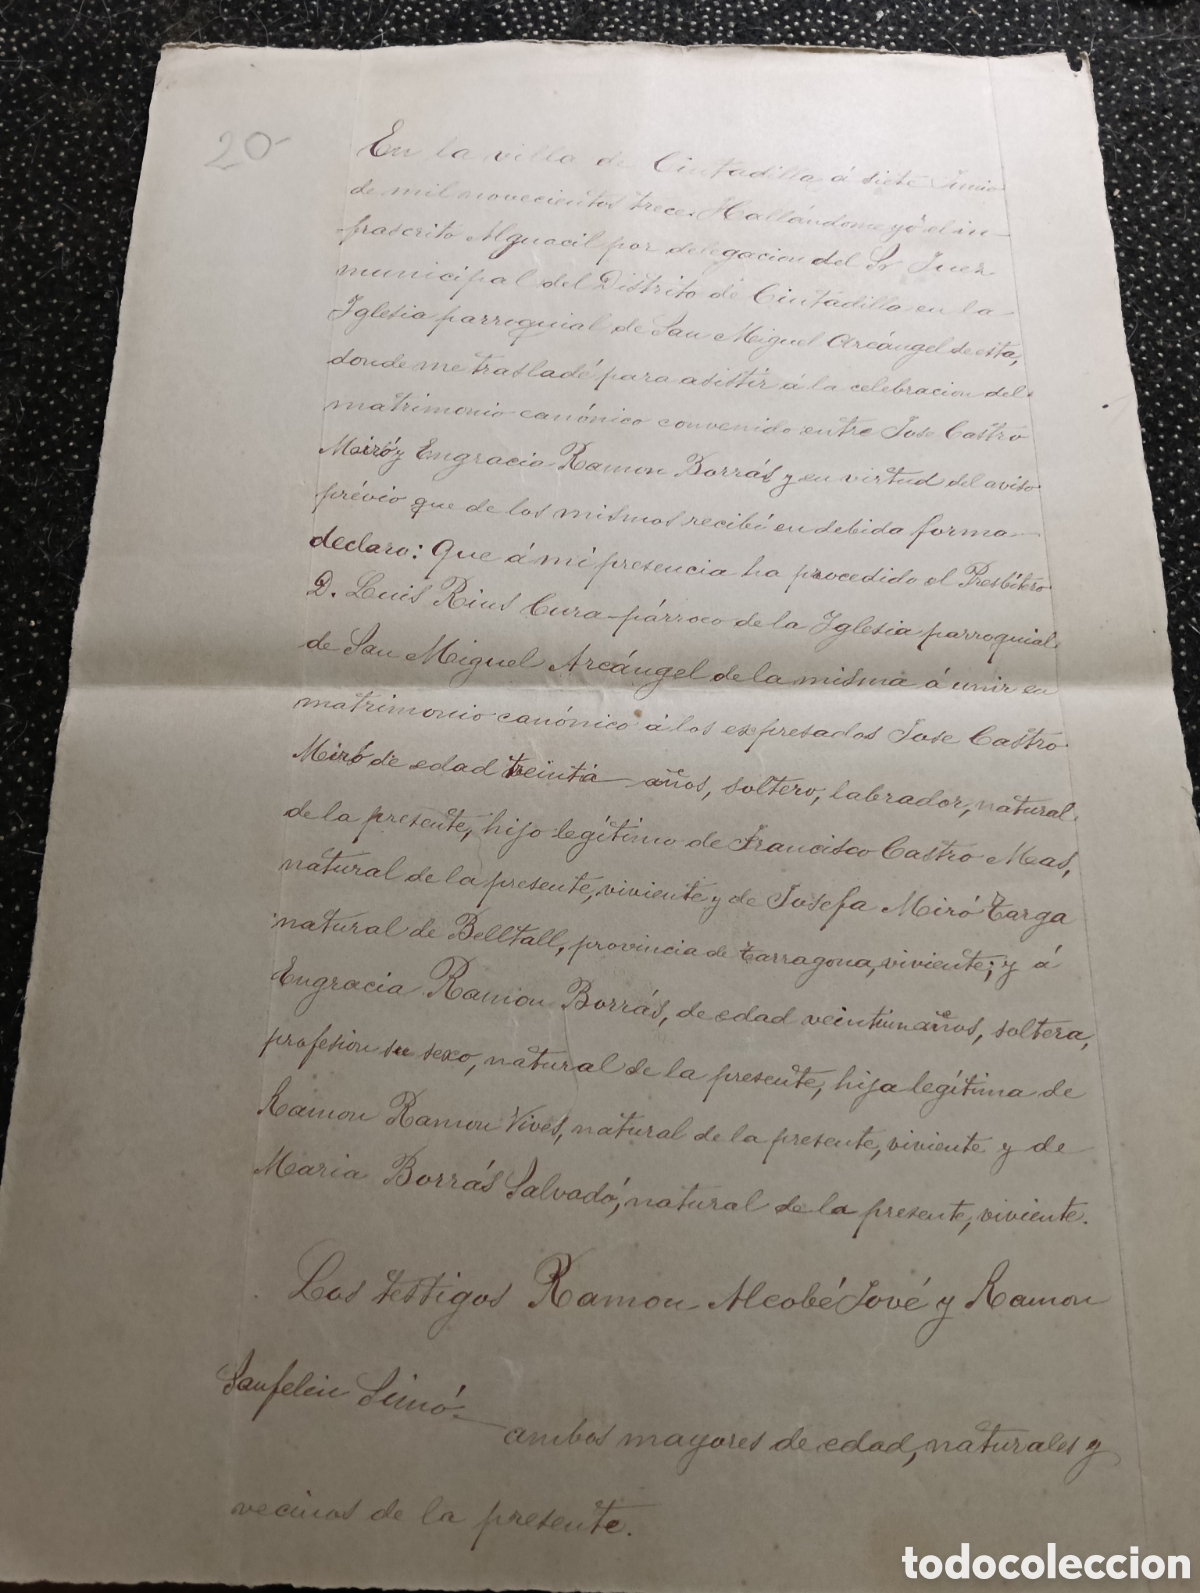 20-
En la villa de Ciutadilla á siete Junio
de mil novecientos trece. Hallándome yo el in-
frascrito Alguacil por delegacion del Sr Juez
municipal del Distrito de Ciutadilla en la
Iglesia parroquial de San Miguel Arcángel de esta,
donde me trasladé para asistir á la celebracion del
matrimonio canónico convenido entre Jose Castro
Miró y Engracia Ramon Borrás y en virtud del aviso
prévio que de los mismos recibí en debida forma
declaro: Que á mi presencia ha procedido el Presbítero
D. Luis Rius Cura-párroco de la Iglesia parroquial
de San Miguel Arcángel de la misma á unir en
matrimonio canónico á los expresados Jose Castro
Miró de edad treinta años, soltero, labrador, natural
de la presente, hijo legítimo de Francisco Castro Mas,
natural de la presente, viviente y de Josefa Miró Targa
natural de Belltall, provincia de Tarragona, viviente; y á
Engracia Ramon Borrás, de edad veintiun años, soltera,
profesion su sexo, natural de la presente, hija legítima de
Ramon Ramon Vives, natural de la presente, viviente y de
Maria Borrás Salvadó, natural de la presente, viviente.
Los testigos Ramon Alcobé Jové y Ramon
Sanfeliu Simó ambos mayores de edad, naturales y
vecinos de la presente.
todocoleccion